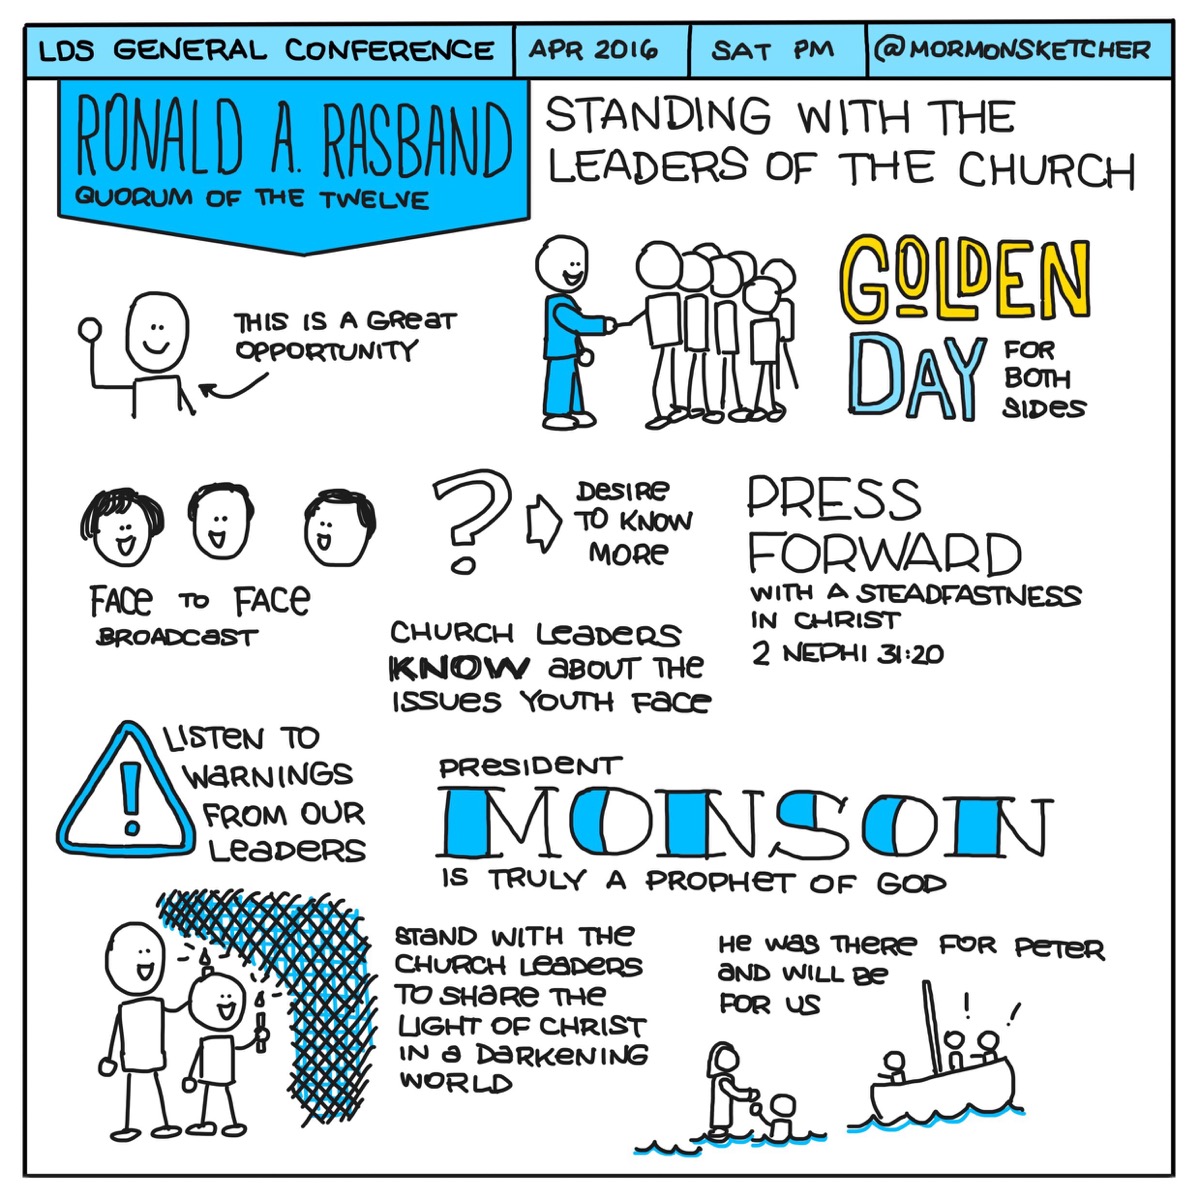 LDS GENERAL CONFERENCE
APR 2016
SAT PM
@MORMONSKETCHER
RONALD A. RASBAND
QUORUM OF THE TWELVE
STANDING WITH THE
LEADERS OF THE CHURCH
THIS IS A GREAT
OPPORTUNITY
GOLDEN
DAY
FOR
BOTH
SIDES
FACE TO FACE
BROADCAST
?
DESIRE
TO KNOW
MORE
CHURCH LEADERS
KNOW ABOUT THE
ISSUES YOUTH FACE
PRESS
FORWARD
WITH A STEADFASTNESS
IN CHRIST
2 NEPHI 31:20
!
LISTEN TO
WARNINGS
FROM OUR
LEADERS
PRESIDENT
MONSON
IS TRULY A PROPHET OF GOD
STAND WITH THE
CHURCH LEADERS
TO SHARE THE
LIGHT OF CHRIST
IN A DARKENING
WORLD
HE WAS THERE FOR PETER
AND WILL BE
FOR US
! !